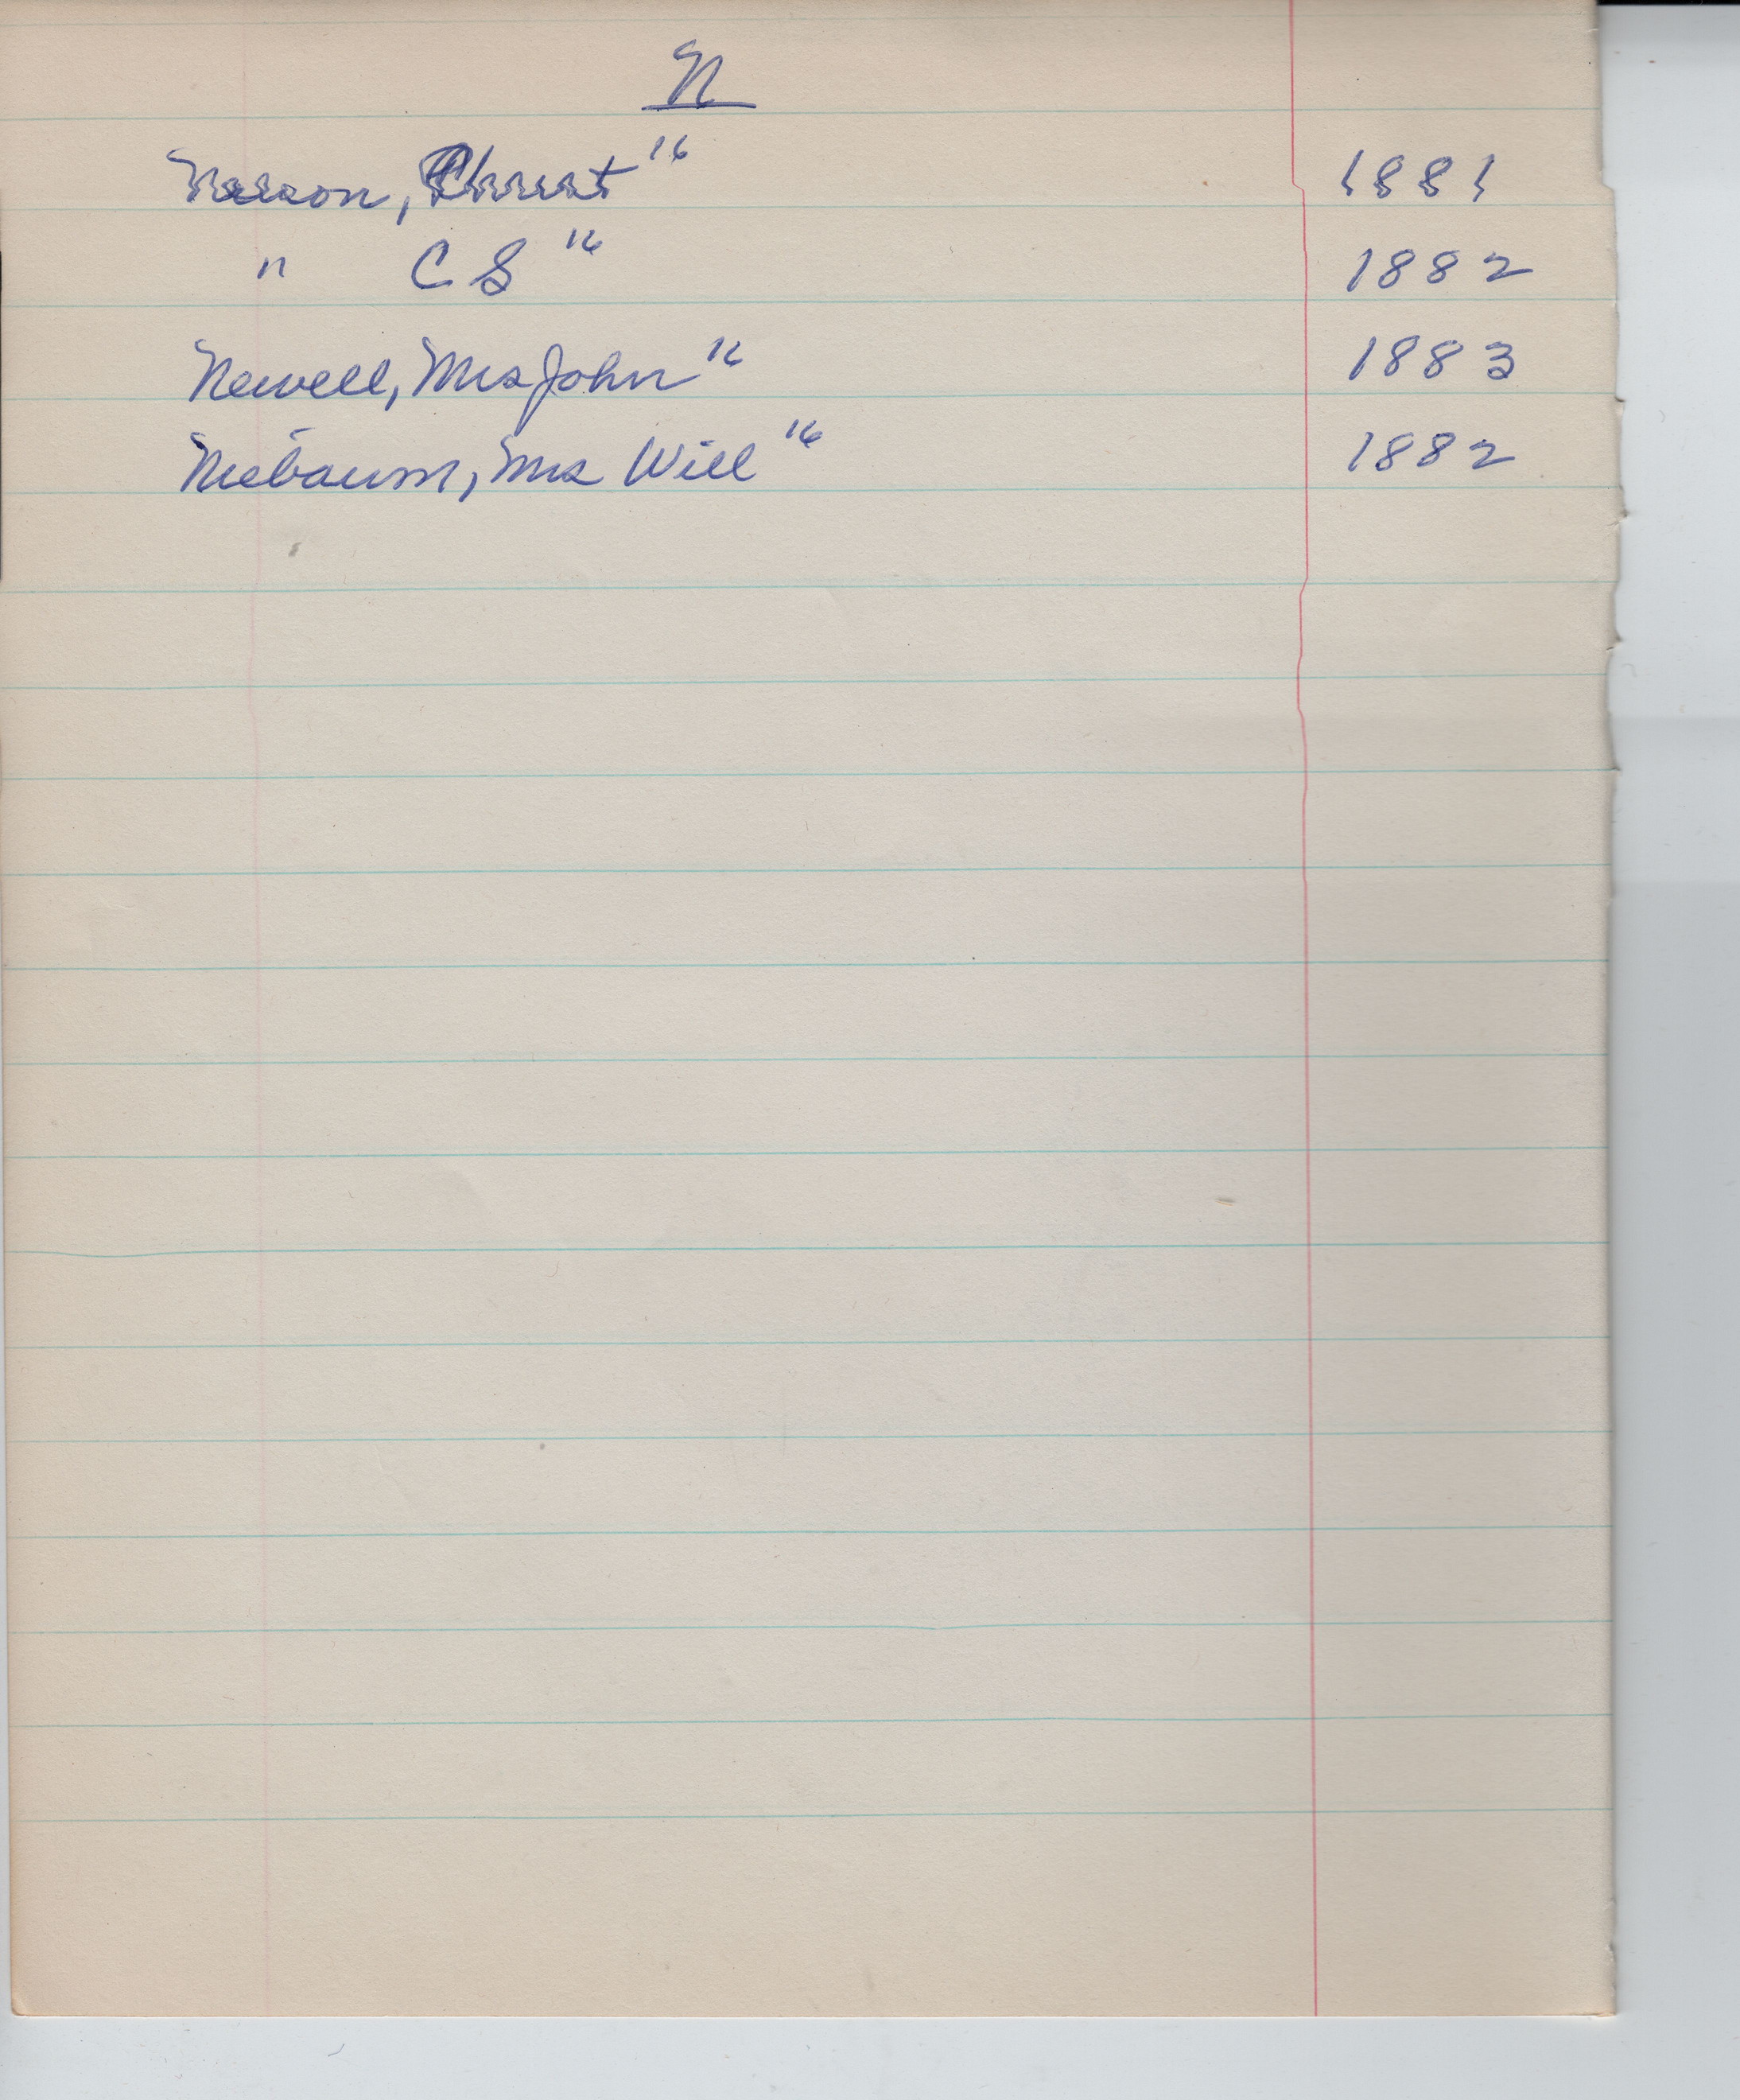 N
Nelson, Christ 16 1881
" C S 16 1882
Newell, Mrs John 16 1883
Niebaum, Mrs Will 16 1882